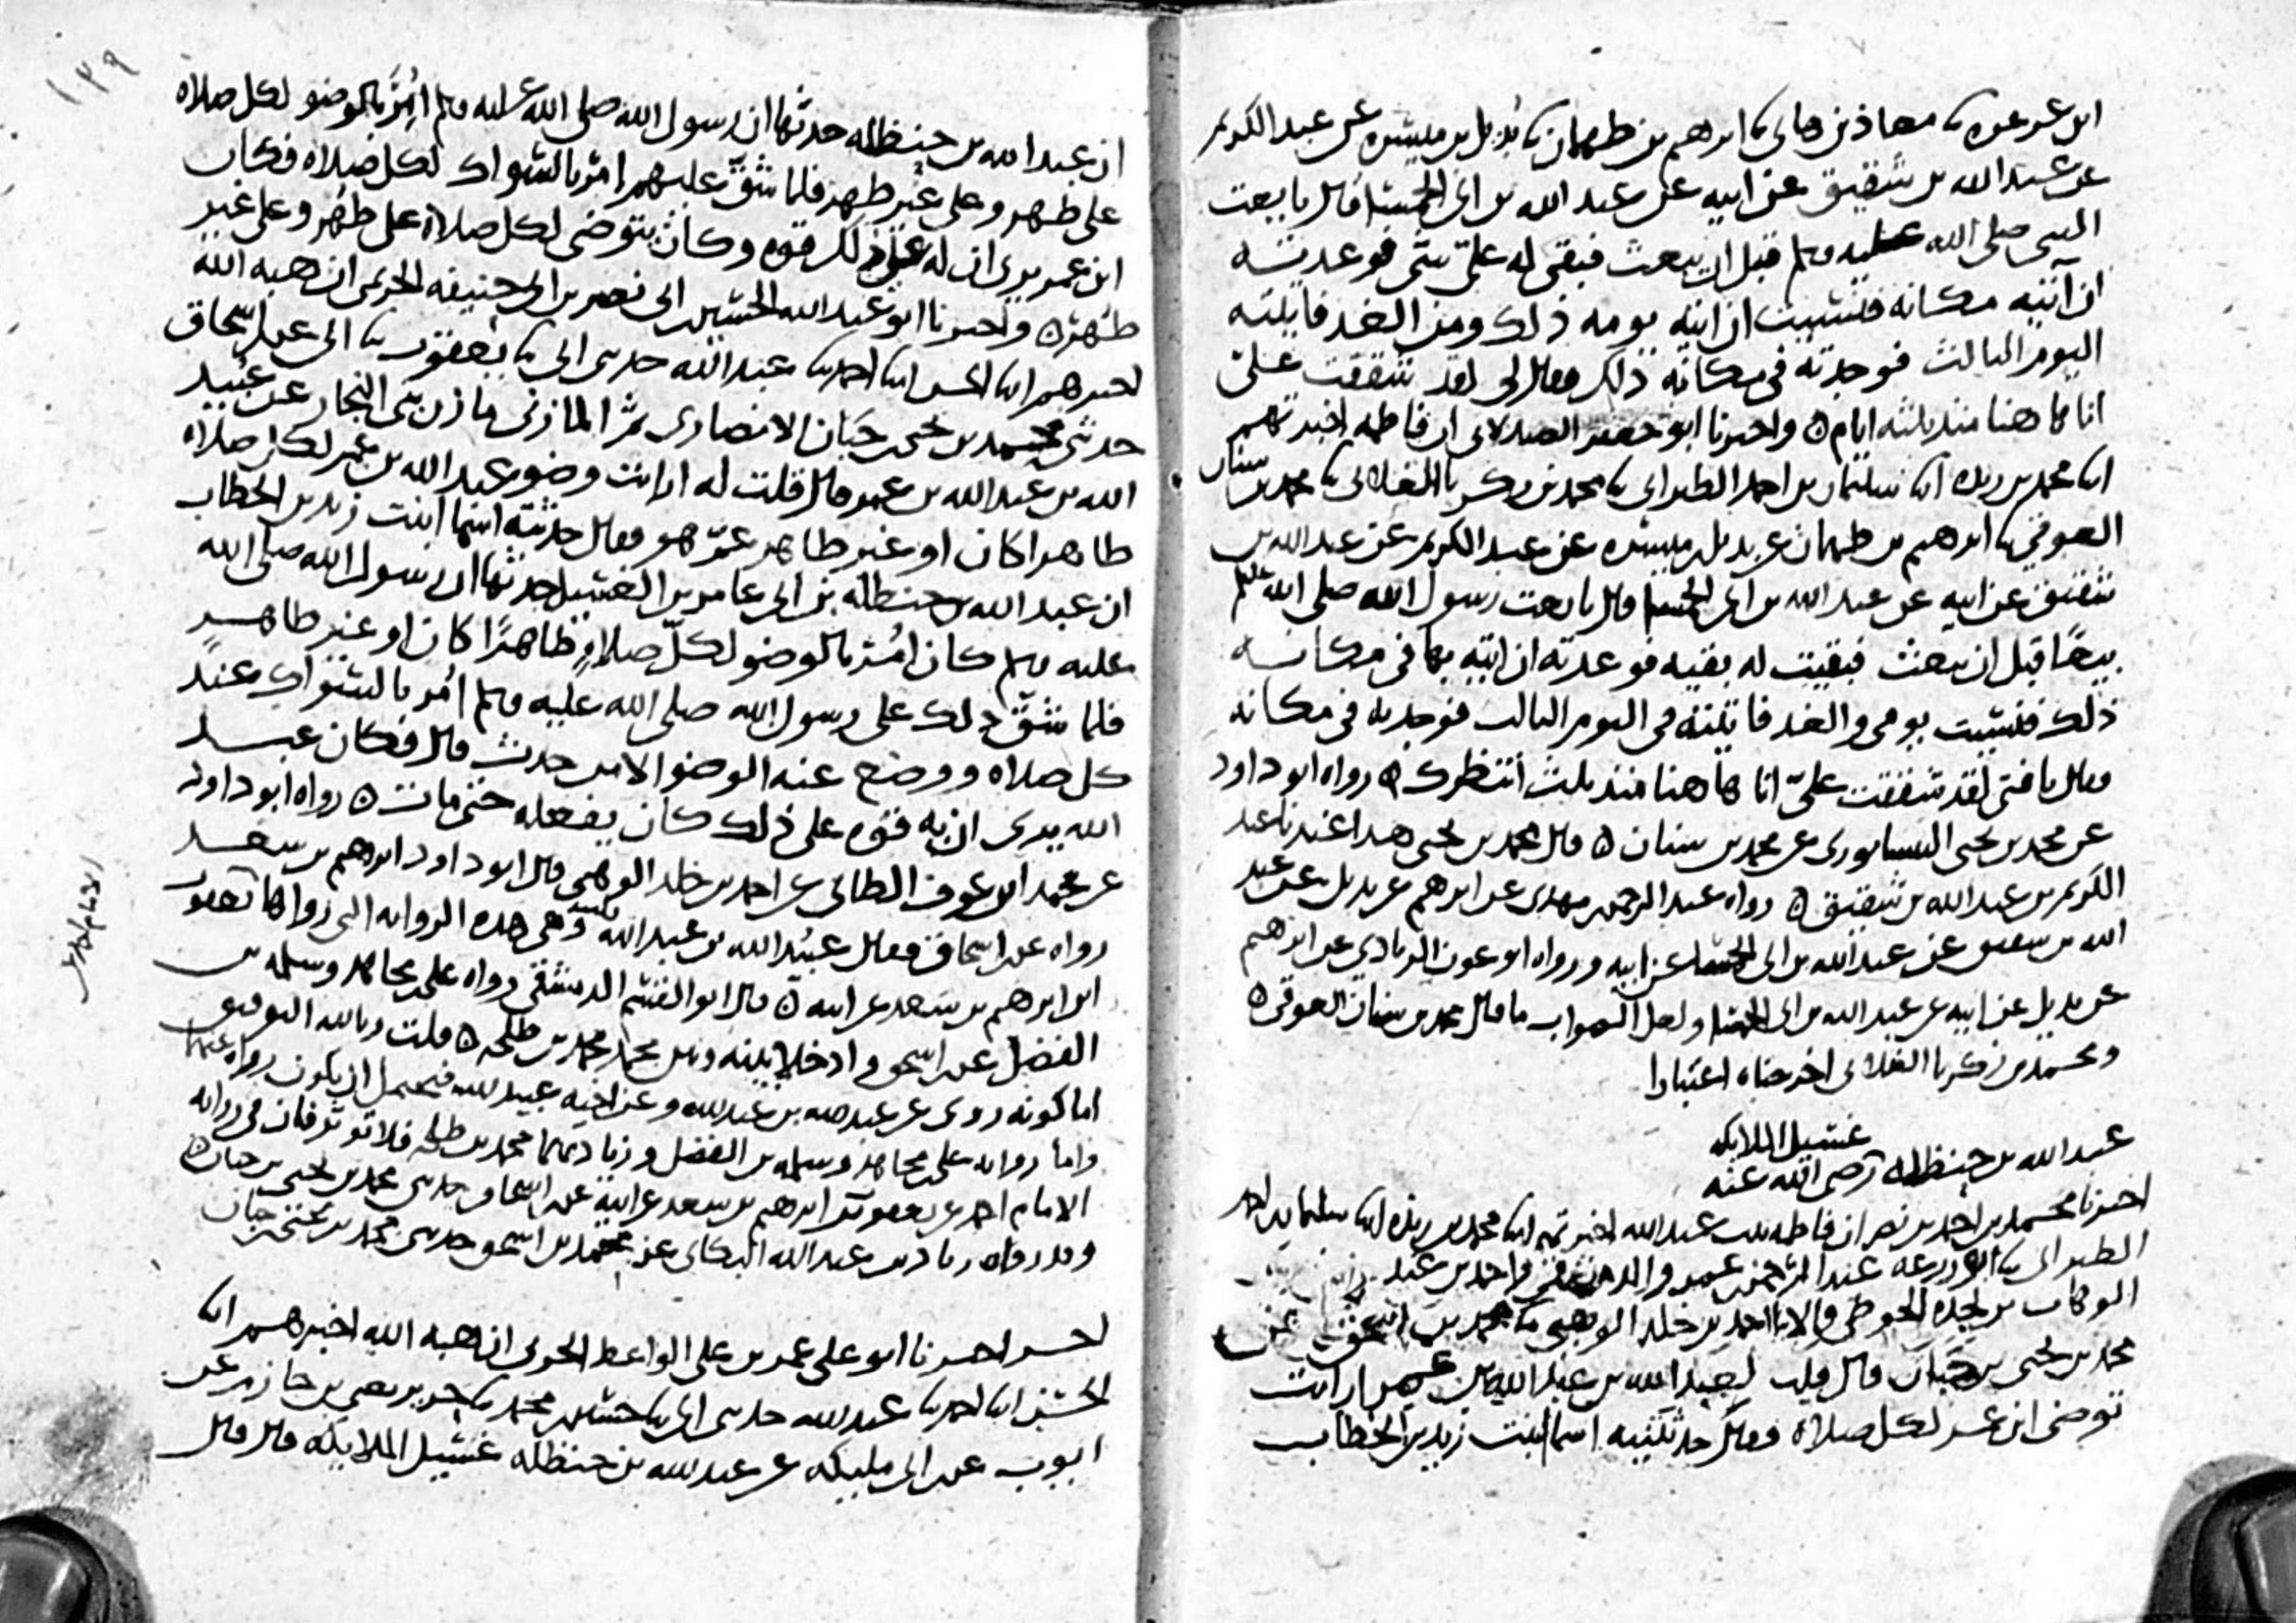 ابن عرعره ثنا معاذ بن هانى ثنا ابرهيم بن طهمان ثنا بُديل بن ميسره عن عبد الكريم
عن عبد الله بن شقيق عن ابيه عن عبد الله بن ابى الحمسا قال بايعت
النبى صلى الله عليه وسلم قبل ان يبعث فبقى له علىّ شى فوعدته
ان آتيه مكانه فنسيت ان اتيه يومه ذلك ومن الغد فاتيته
اليوم الثالث فوجدته فى مكانه ذلك فقال لى لقد شققت علىّ
انا ها هنا منذ ثلثه ايام ٥ واخبرنا ابو جعفر الصيدلانى ان فاطمه اخبرتهم
ابنا محمد بن ريذه ابنا سليمان بن احمد الطبرانى ثنا محمد بن زكريا الغلابى ثنا محمد بن سنان
العوقي ثنا ابرهيم بن طهمان عن بديل بن ميسره عن عبد الكريم عن عبد الله بن
شقيق عن ابيه عن عبد الله بن ابى الحمسا قال بايعت رسول الله صلى الله عليه وسلم
بيعًا قبل ان يبعث فبقيت له بقيه فوعدته ان اتيه بها فى مكانه
ذلك فنسيت يومى والغد فاتيته فى اليوم الثالث فوجدته فى مكانه
فقال يا فتى لقد شققت علىّ انا ها هنا منذ ثلث أنتظرك ٥ رواه ابو داود
عن محمد بن يحيى النيسابورى عن محمد بن سنان ٥ قال محمد بن يحيى هذا عندنا عبد
الكريم بن عبد الله بن شقيق ٥ رواه عبد الرحمن بن مهدى عن ابرهيم عن بديل عن عبد
الله بن شقيق عن عبد الله بن ابى الحمسا عن ابيه ورواه ابو عون الزيادي عن ابرهيم
عن بديل عن ابيه عن عبد الله بن ابى الحمسا ولعل الصواب ما قال محمد بن سنان العوقي ٥
ومحمد بن زكريا الغلابى اخرجناه اعتبارا
غسيل الملايكه
عبد الله بن حنظله رضى الله عنه
اخبرنا محمد بن احمد بن نصر ان فاطمه بنت عبد الله اخبرتهم ابنا محمد بن ريذه ابنا سليمان بن احمد
الطبرانى ثنا ابو زرعه عبد الرحمن بن عمرو الدمشقى واحمد بن عبد
الوهاب بن نجده الحوطى قالا ثنا احمد بن خلد الوهبى ثنا محمد بن اسحق عن
محمد بن يحيى بن حبان قال قلت لعبد الله بن عبد الله بن عمر ارايت
توضى ابن عمر لكل صلاة فقال حدثتنيه اسما ابنت زيد بن الخطاب
١٣٩
ان عبد الله بن حنظله حدثها ان رسول الله صلى الله عليه وسلم اُمِرَ بالوضو لكل صلاه
على طهر وعلى غير طهر فلما شقّ عليهم امر بالسواك لكل صلاه فكان
ابن عمر يرى ان له على ذلك قوه وكان يتوضى لكل صلاة على طهر وعلى غير
طهر ٥ واخبرنا ابو عبد الله الحسين بن ابى نصر بن ابى حنيفه الحريمى ان هبه الله
اخبرهم ابنا الحسن ابنا احمد ثنا عبد الله حدثنى ابى ثنا يعقوب ثنا ابى عن ابن اسحاق
حدثنى محمد بن يحيى بن حَبّان الانصارى ثم المازنى مازن بنى النجار عن عبيد
الله بن عبد الله بن عمر قال قلت له ارايت وضو عبد الله بن عمر لكل صلاه
طاهرا كان او غير طاهر عمّ هو فقال حدثته اسما ابنت زيد بن الخطاب
ان عبد الله بن حنظله بن ابى عامر بن الغسيل حدثها ان رسول الله صلى الله
عليه وسلم كان اُمر بالوضو لكلّ صلاةٍ طاهرًا كان او غير طاهرٍ
فلما شقّ ذلك على رسول الله صلى الله عليه وسلم اُمر بالسواك عند
كل صلاه ووضع عنه الوضو الا من حدث قال فكان عبد
الله يرى ان به قوه على ذلك كان يفعله حتى مات ٥ رواه ابو داود
عن محمد ابن عوف الطائى عن احمد بن خلد الوهبى قال ابو داود ابرهيم بن سعد
رواه عن ابن اسحاق فقال عبيد الله بن عبد الله وهى هذه الروايه التى رواها يعقوب
ابن ابرهيم بن سعد عن ابيه ٥ قال ابو القسم الدمشقى رواه على بن مجاهد وسلمه بن
الفضل عن ابن اسحق وادخلا بينه وبين محمد محمد بن طلحه ٥ قلت وبالله التوفيق
اما كونه روى عن عبد الله بن عبد الله وعن اخيه عبيد الله فيحتمل ان يكون رواه عنهما
واما روايه على بن مجاهد وسلمه بن الفضل وزيادتهما محمد بن طلحه فلا توثر فان فى روايه
الامام احمد عن يعقوب بن ابرهيم بن سعد عن ابيه عن ابن اسحاق حدثنى محمد بن يحيى بن حبان ٥
وقد رواه زياد بن عبد الله البكائى عن محمد بن اسحق حدثنى محمد بن يحيى بن حبان
اخـر اخبرنا ابو على عمر بن على الواعظ الحربى ان هبه الله اخبرهم ابنا
الحسن ابنا احمد ثنا عبد الله حدثنى ابى ثنا حسين بن محمد ثنا جرير يعنى بن حازم عن
ايوب عن ابن ابى مليكه عن عبد الله بن حنظله غسيل الملايكه قال قال